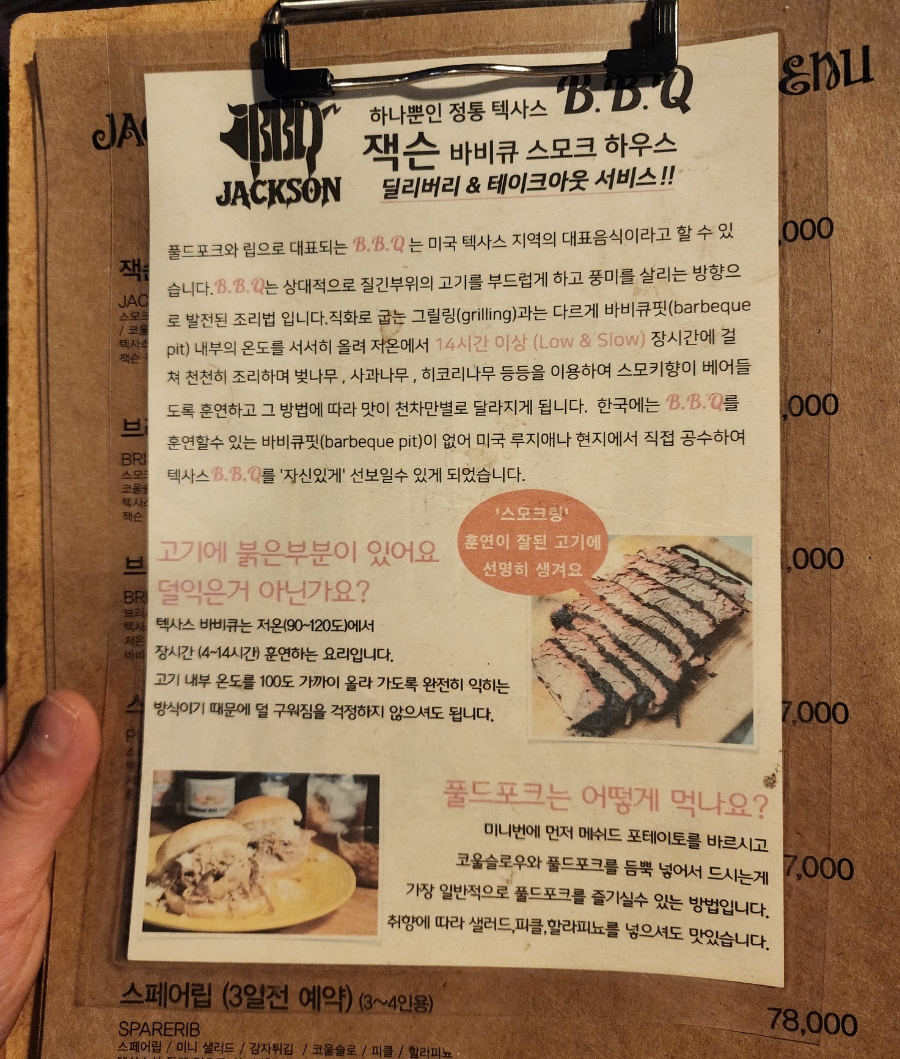 ENU
JAC
BBQ
JACKSON
하나뿐인 정통 텍사스 B.B.Q
잭슨 바비큐 스모크 하우스
딜리버리 & 테이크아웃 서비스!!
풀드포크와 립으로 대표되는 B.B.Q 는 미국 텍사스 지역의 대표음식이라고 할 수 있
습니다.B.B.Q는 상대적으로 질긴부위의 고기를 부드럽게 하고 풍미를 살리는 방향으
로 발전된 조리법 입니다.직화로 굽는 그릴링(grilling)과는 다르게 바비큐핏(barbeque
pit) 내부의 온도를 서서히 올려 저온에서 14시간 이상 (Low & Slow) 장시간에 걸
쳐 천천히 조리하며 벚나무 , 사과나무 , 히코리나무 등등을 이용하여 스모키향이 베어들
도록 훈연하고 그 방법에 따라 맛이 천차만별로 달라지게 됩니다. 한국에는 B.B.Q를
훈연할수 있는 바비큐핏(barbeque pit)이 없어 미국 루지애나 현지에서 직접 공수하여
텍사스B.B.Q를 '자신있게' 선보일수 있게 되었습니다.
'스모크링'
훈연이 잘된 고기에
선명히 생겨요
고기에 붉은부분이 있어요
덜익은거 아닌가요?
텍사스 바비큐는 저온(90~120도)에서
장시간 (4~14시간) 훈연하는 요리입니다.
고기 내부 온도를 100도 가까이 올라 가도록 완전히 익히는
방식이기 때문에 덜 구워짐을 걱정하지 않으셔도 됩니다.
풀드포크는 어떻게 먹나요?
미니번에 먼저 메쉬드 포테이토를 바르시고
코울슬로우와 풀드포크를 듬뿍 넣어서 드시는게
가장 일반적으로 풀드포크를 즐기실수 있는 방법입니다.
취향에 따라 샐러드,피클,할라피뇨를 넣으셔도 맛있습니다.
,000
,000
,000
7,000
7,000
스페어립 (3일전 예약) (3~4인용)
78,000
SPARERIB
스페어립 / 미니 샐러드 / 감자튀김 / 코울슬로 / 피클 / 할라피뇨